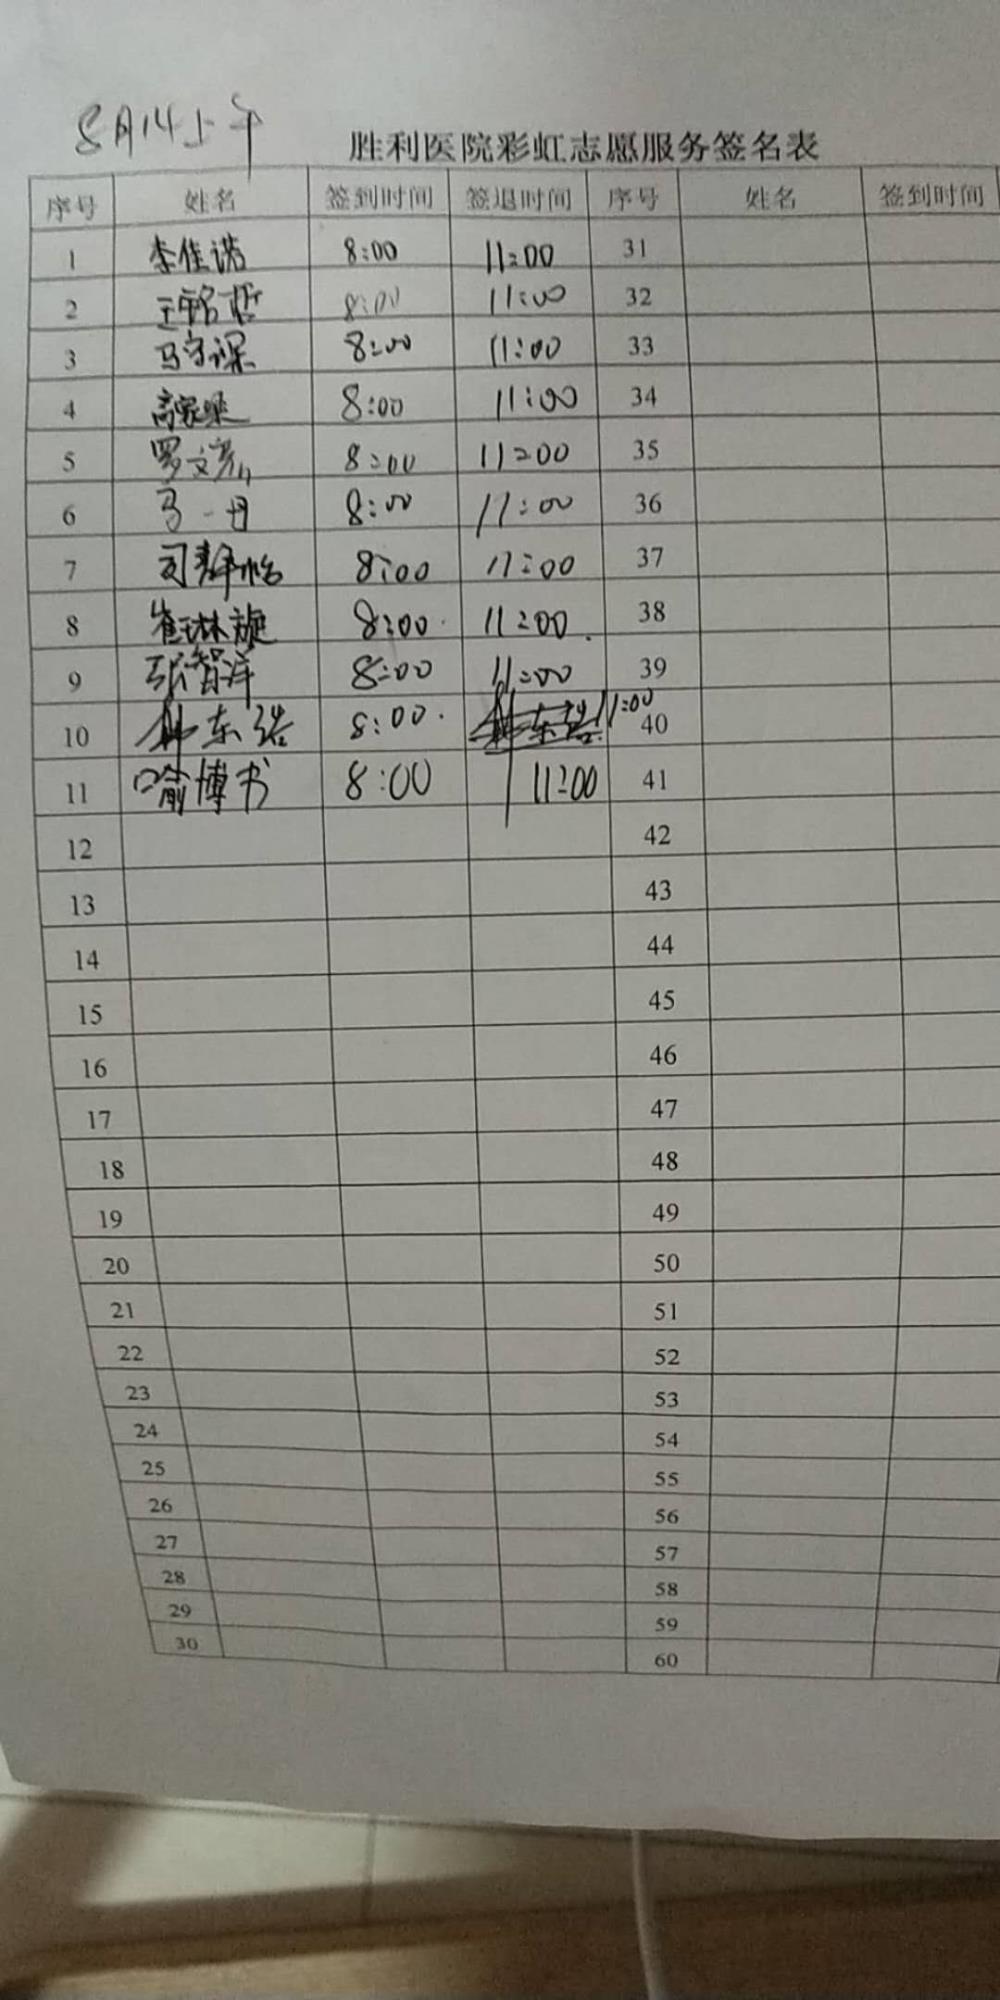 8月14上午
胜利医院彩虹志愿服务签名表
序号 姓名 签到时间 签退时间 序号 姓名 签到时间
1 李佳诺 8:00 11:00 31
2 王铭哲 8:00 11:00 32
3 马守 8:00 11:00 33
4 高家 8:00 11:00 34
5 罗文 8:00 11:00 35
6 马一丹 8:00 11:00 36
7 司静怡 8:00 11:00 37
8 崔琳旋 8:00 11:00 38
9 张智 8:00 11:00 39
10 韩东 8:00 11:00 40
11 喻博书 8:00 11:00 41
12 42
13 43
14 44
15 45
16 46
17 47
18 48
19 49
20 50
21 51
22 52
23 53
24 54
25 55
26 56
27 57
28 58
29 59
30 60